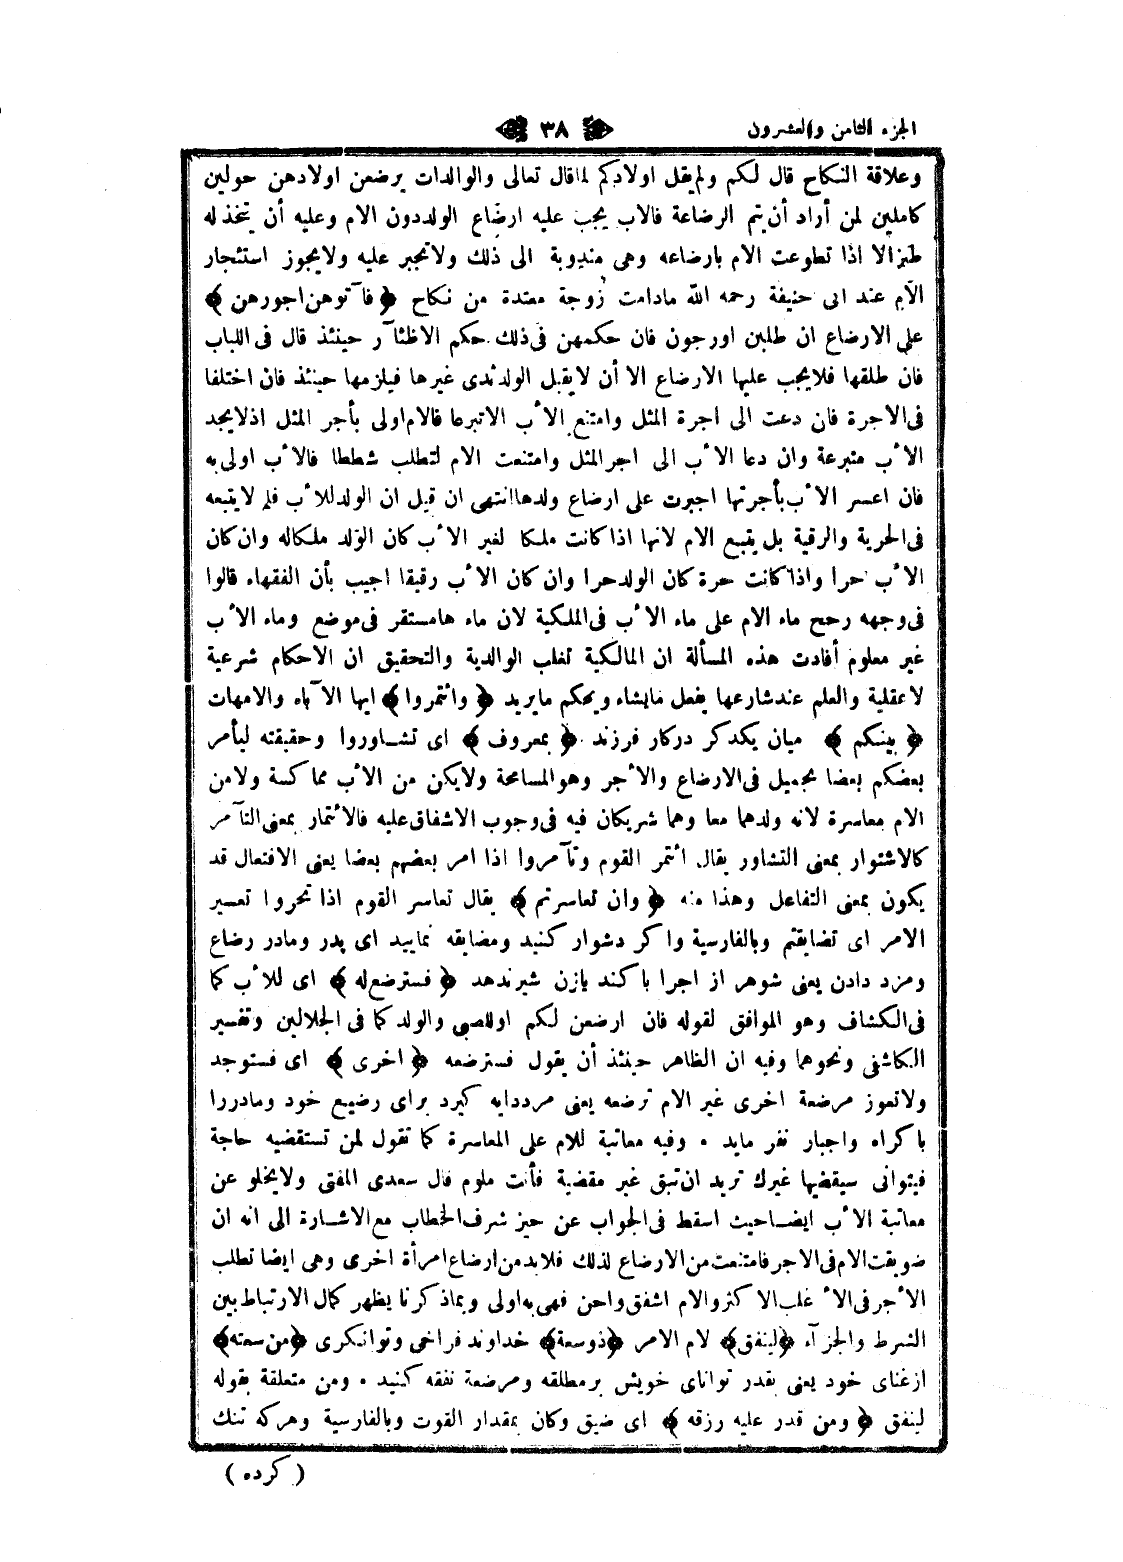 الجزء الثامن والعشرون
٣٨
وعلاقة النكاح قال لكم ولم يقل اولادكم لما قال تعالى والوالدات يرضعن اولادهن حولين
كاملين لمن أراد أن يتم الرضاعة فالاب يجب عليه ارضاع الولد دون الام وعليه أن يتخذ له
ظئرا الا اذا تطوعت الام بارضاعه وهى مندوبة الى ذلك ولا تجبر عليه ولا يجوز استئجار
الام عند ابى حنيفة رحمه الله مادامت زوجة معتدة من نكاح ﴿ فآتوهن اجورهن ﴾
على الارضاع ان طلبن اورجون فان حكمهن فى ذلك حكم الاظئآر حينئذ قال فى اللباب
فان طلقها فلايجب عليها الارضاع الا أن لايقبل الولد ثدى غيرها فيلزمها حينئذ فان اختلفا
فى الاجرة فان دعت الى اجرة المثل وامتنع الأب الاتبرعا فالام اولى بأجر المثل اذلايجد
الأب متبرعة وان دعا الأب الى اجر المثل وامتنعت الام لتطلب شططا فالأب اولى به
فان اعسر الأب بأجرتها اجبرت على ارضاع ولدها انتهى ان قيل ان الولد للأب فلم لايتبعه
فى الحرية والرقية بل يتبع الام لانها اذا كانت ملكا لغير الأب كان الولد ملكاله وان كان
الأب حرا واذا كانت حرة كان الولد حرا وان كان الأب رقيقا اجيب بأن الفقهاء قالوا
فى وجهه رجح ماء الام على ماء الأب فى الملكية لان ماء هامستقر فى موضع وماء الأب
غير معلوم أفادت هذه المسألة ان المالكية تغلب الوالدية والتحقيق ان الاحكام شرعية
لاعقلية والعلم عند شارعها يفعل مايشاء ويحكم مايريد ﴿ وائتمروا ﴾ ايها الآباء والامهات
﴿ بينكم ﴾ ميان يكدكر دركار فرزند ﴿ بمعروف ﴾ اى تشاوروا وحقيقته ليأمر
بعضكم بعضا بجميل فى الارضاع والأجر وهو المسامحة ولايكن من الأب مماكسة ولا من
الام معاسرة لانه ولدهما معا وهما شريكان فيه فى وجوب الاشفاق عليه فالائتمار بمعنى التآمر
كالاشتوار بمعنى التشاور يقال ائتمر القوم وتآمروا اذا امر بعضهم بعضا يعنى الافتعال قد
يكون بمعنى التفاعل وهذا منه ﴿ وان تعاسرتم ﴾ يقال تعاسر القوم اذا تحروا تعسير
الامر اى تضايقتم وبالفارسية واكر دشوار كنيد ومضايقه نماييد اى پدر ومادر رضاع
ومزد دادن يعنى شوهر از اجرا با كند يازن شيرندهد ﴿ فسترضع له ﴾ اى للأب كما
فى الكشاف وهو الموافق لقوله فان ارضعن لكم اوللصبى والولد كما فى الجلالين وتفسير
الكاشفى ونحوهما وفيه ان الظاهر حينئذ أن يقول فسترضعه ﴿ اخرى ﴾ اى فستوجد
ولاتعوز مرضعة اخرى غير الام ترضعه يعنى مرددايه كيرد براى رضيع خود ومادررا
باكراه واجبار نفر مايد ٠ وفيه معاتبة للام على المعاسرة كما تقول لمن تستقضيه حاجة
فيتوانى سيقضيها غيرك تريد ان تبقى غير مقضية فأنت ملوم قال سعدى المفتى ولايخلو عن
معاتبة الأب ايضا حيث اسقط فى الجواب عن حيز شرف الخطاب مع الاشارة الى انه ان
ضويقت الام فى الاجر فامتنعت من الارضاع لذلك فلابد من ارضاع امرأة اخرى وهى ايضا تطلب
الأجر فى الأغلب الاكثر والام اشفق واحن فهى به اولى وبما ذكرنا يظهر كمال الارتباط بين
الشرط والجزآء ﴿لينفق﴾ لام الامر ﴿ذوسعة﴾ خداوند فراخى وتوانكرى ﴿من سعته﴾
ازغناى خود يعنى بقدر تواناى خويش بر مطلقه ومرضعة نفقه كنيد ٠ ومن متعلقة بقوله
لينفق ﴿ ومن قدر عليه رزقه ﴾ اى ضيق وكان بمقدار القوت وبالفارسية وهركه تنك
( كرده )